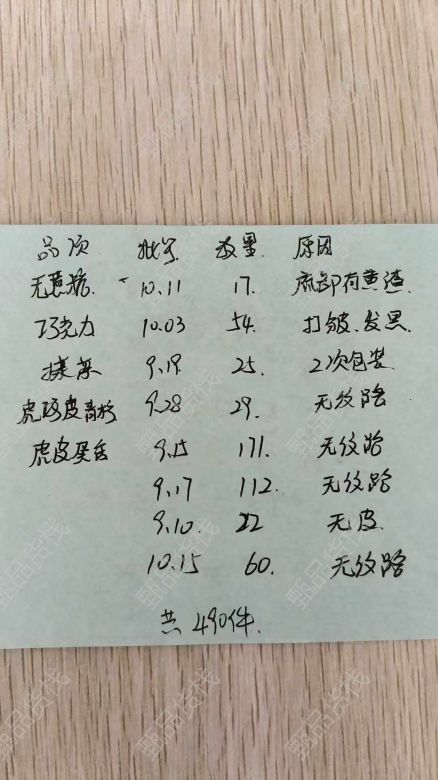 品项 批号 数量 原因
无蔗糖 10.11 17. 底部有黄渣
巧克力 10.03 54. 打皱、发黑
抹茶 9.19 25. 2次包装
虎皮 9.28 29. 无纹路
虎皮 9.15 171. 无纹路
9.17 112. 无纹路
9.10. 22 无皮.
10.15 60. 无纹路
共490件.
甄品货栈